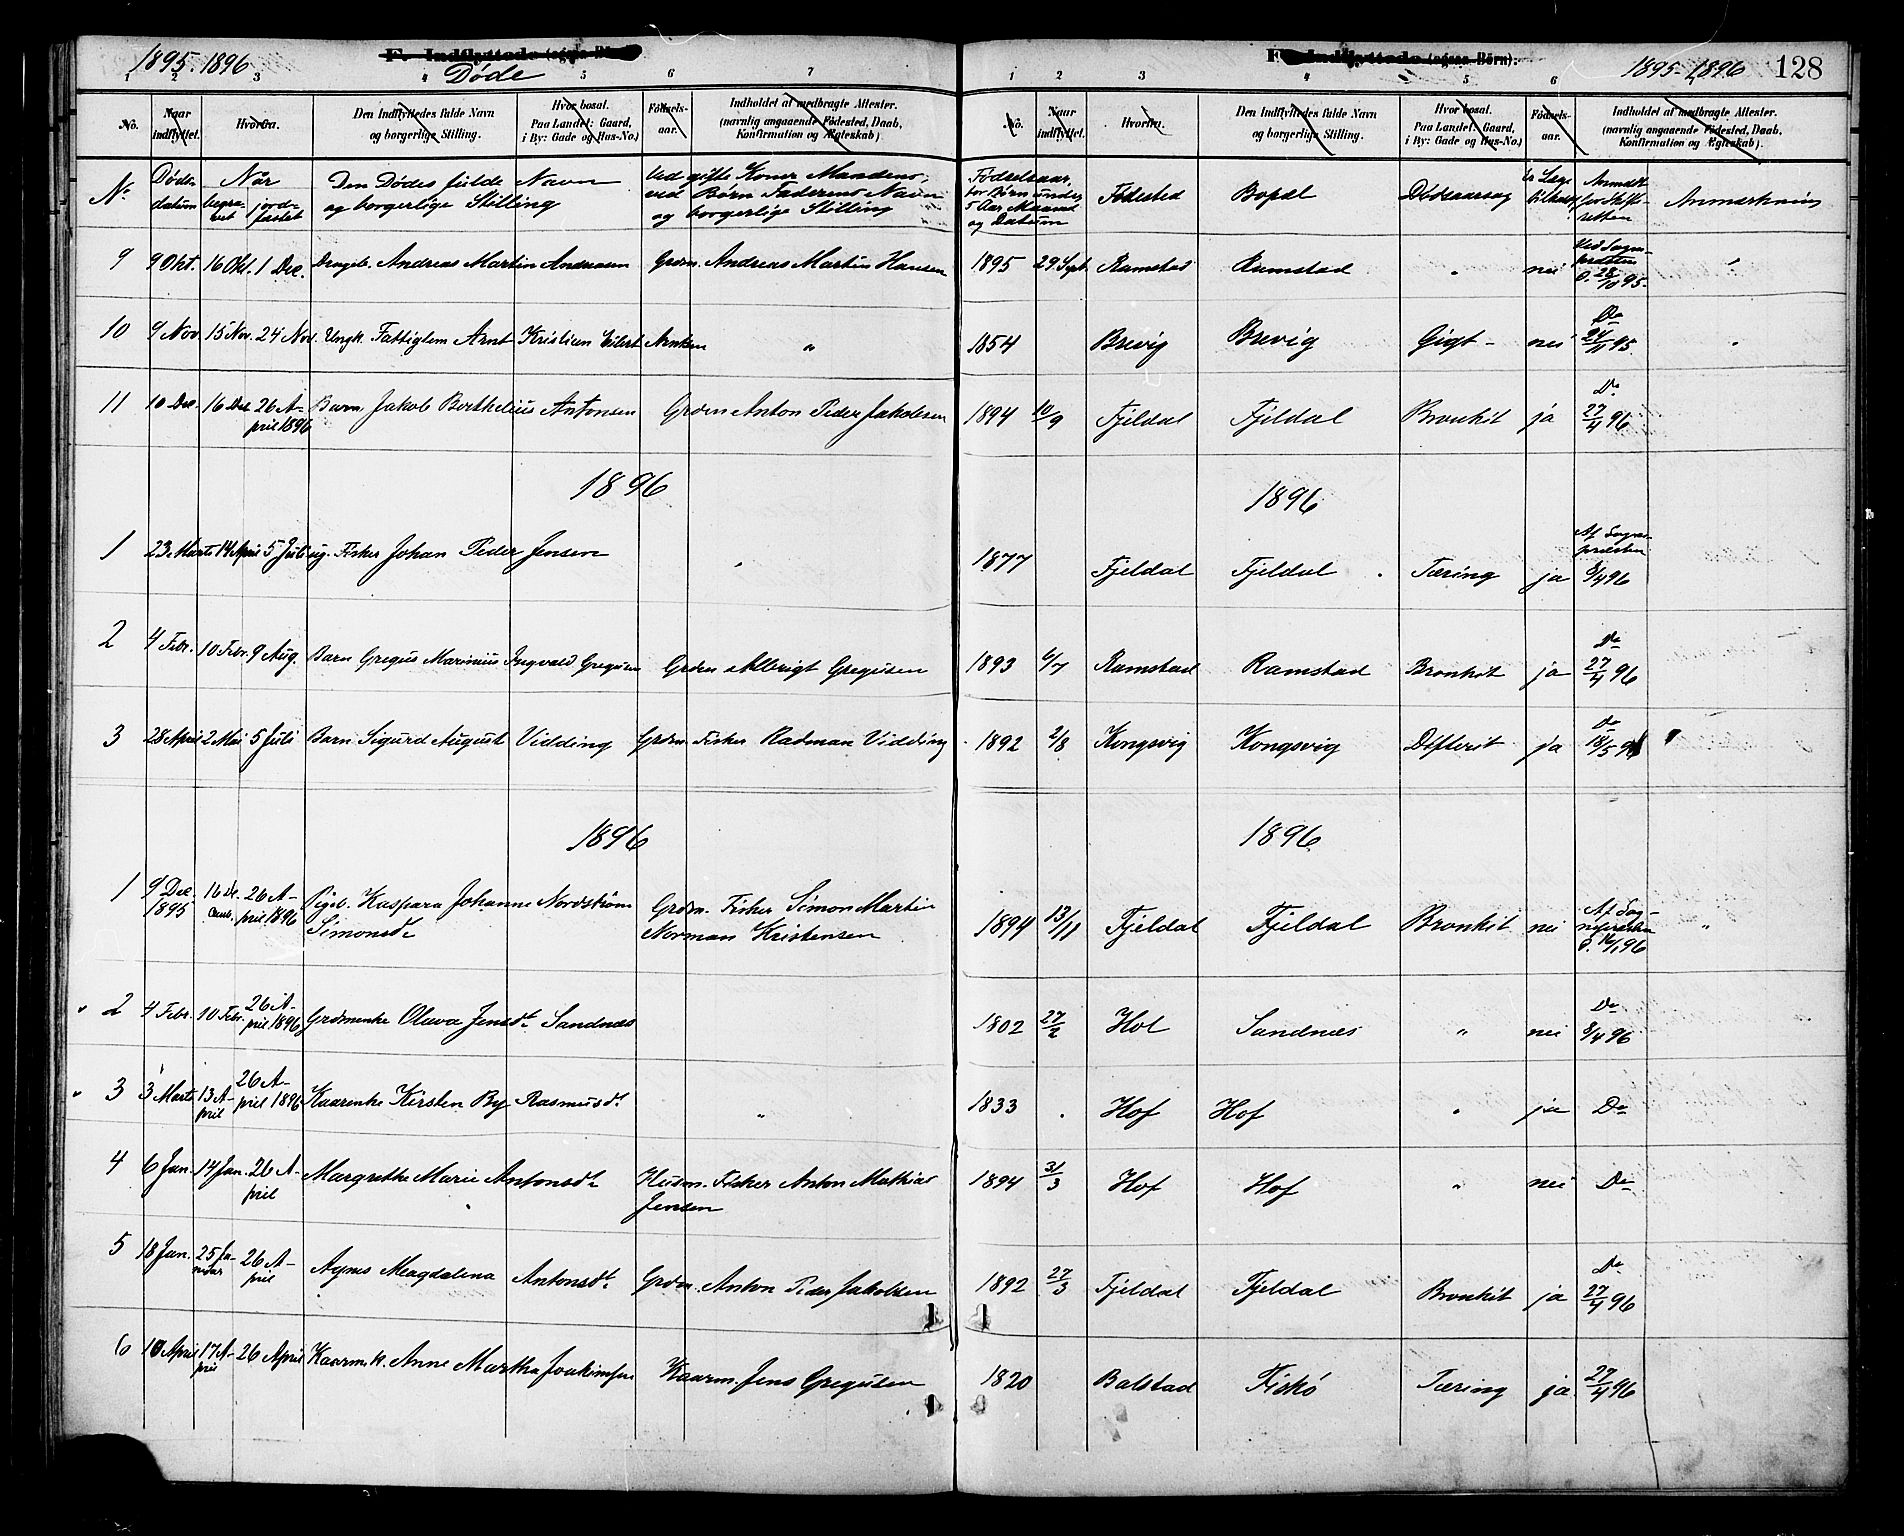 1895-1896
F. Indflyttede (ogsaa Børn).
Døde
1 2 3 4 5 6 7
No. Naar indflyttet. Hvorfra. Den Indflyttedes fulde Navn og borgerlige Stilling. Hvor bosat. Paa Landet: Gaard, i By: Gade og Hus-No.) Fødselsaar. Indholdet af medbragte Attester. (navnlig angaaende Fødested, Daab, Konfirmation og Ægteskab.)
No. Døds datum Når begravet jordfæstet Den Dødes fulde Navn og borgerlige Stilling Ved gifte Koner Mandens, ved Børn Faderens Navn og borgerlige Stilling
9 9 Okt. 16 Okt. 1 Dec. Drengeb. Andreas Martin Andreasen Grdm. Andreas Martin Hansen
10 9 Nov. 15 Nov. 24 Nov. Ungk. Fattiglem Arnt Kristian Eilert Arntsen "
11 10 Dec. 16 Dec 26 April 1896 Barn Jakob Berthelius Antonsen Grdm Anton Peder Jakobsen
1896
1 23 Marts 14 April 5 Juli ug. Fisker Johan Peder Jensen "
2 4 Febr. 10 Febr. 9 Aug. Barn Gregus Marinius Ingvald Gregusen Grdm Albrigt Gregusen
3 28 April 2 Mai 5 Juli Barn Sigurd August Vidding Grdm. Fisker Radman Vidding
1896
1 9 Dec. 1895 16 De. 26 April 1896 Pigeb. Kaspara Johanne Nordstrøm Simonsdt Grdm. Fisker Simon Martin Norman Kristensen
2 4 Febr. 10 Febr. 26 April 1896 Grdmenke Oluva Jensdt. Sandnes
3 3 Marts 13 April 26 April 1896 Kaarenke Kirsten By Rasmusdt "
4 6 Jan. 14 Jan. 26 April Margrethe Marie Antonsdt Husm. Fisker Anton Mathias Jensen
5 18 Jan. 25 Januar 26 April Agnes Magdalena Antonsdt. Grdm. Anton Peder Jakobsen
6 10 April 17 April 26 April Kaarm. k. Anne Martha Joakimsen Kaarm. Jens Gregusen
F. Indflyttede (ogsaa Børn).
1895-1896 128
1 2 3 4 5 6
No. Naar indflyttet. Hvorfra. Den Indflyttedes fulde Navn og borgerlige Stilling. Hvor bosat. Paa Landet: Gaard, i By: Gade og Hus-No.) Fødselsaar. Indholdet af medbragte Attester. (navnlig angaaende Fødested, Daab, Konfirmation og Ægteskab).
Fødselsaar, for Børn under 5 Aar Maaned og Datum Fødested Bopæl Dødsaarsag Anmeldt for Skifteretten Anmærkning
1895 29 Sept. Ramstad Ramstad " nei Ved Sognepræsten 28/10 95. "
1854 Brevig Brevig Gigt - nei Do 24/11 95. "
1894 10/9 Fjeldal Fjeldal Bronkit ja Do 27/4 96
1896
1877 Fjeldal Fjeldal Tæring ja Af Sognepræsten 8/4 96
1893 6/7 Ramstad Ramstad Bronkit ja Do 27/4 96
1892 2/8 Kongsvig Kongsvig Difterit ja Do 18/5 96
1896
1894 13/11 Fjeldal Fjeldal Bronkit nei Af Sognepræsten 16/1 96 "
1802 27/2 Hol Sandnæs " nei Do 8/4 96
1833 . Hof Hof " ja Do
1894 31/3 Hof Hof " nei Do
1892 27/3 Fjeldal Fjeldal Bronkit ja Do 27/4 96
1820 Balstad Fiskø Tæring ja 27/4 96